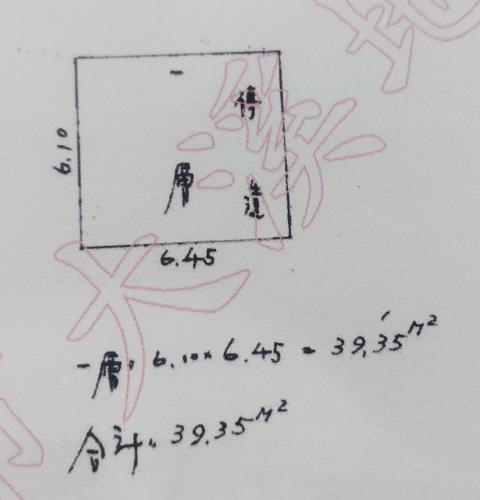 一層
磚造
6.10
6.45
一層: 6.10 × 6.45 = 39.35 M²
合計: 39.35 M²